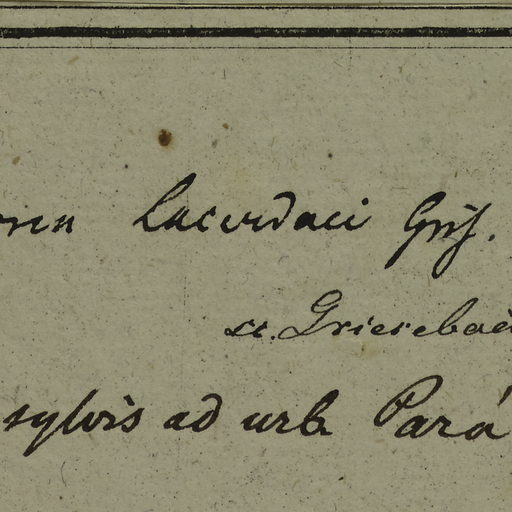 Lacerdaei Gris.
sc. Grisebach
sylvis ad urb. Pará